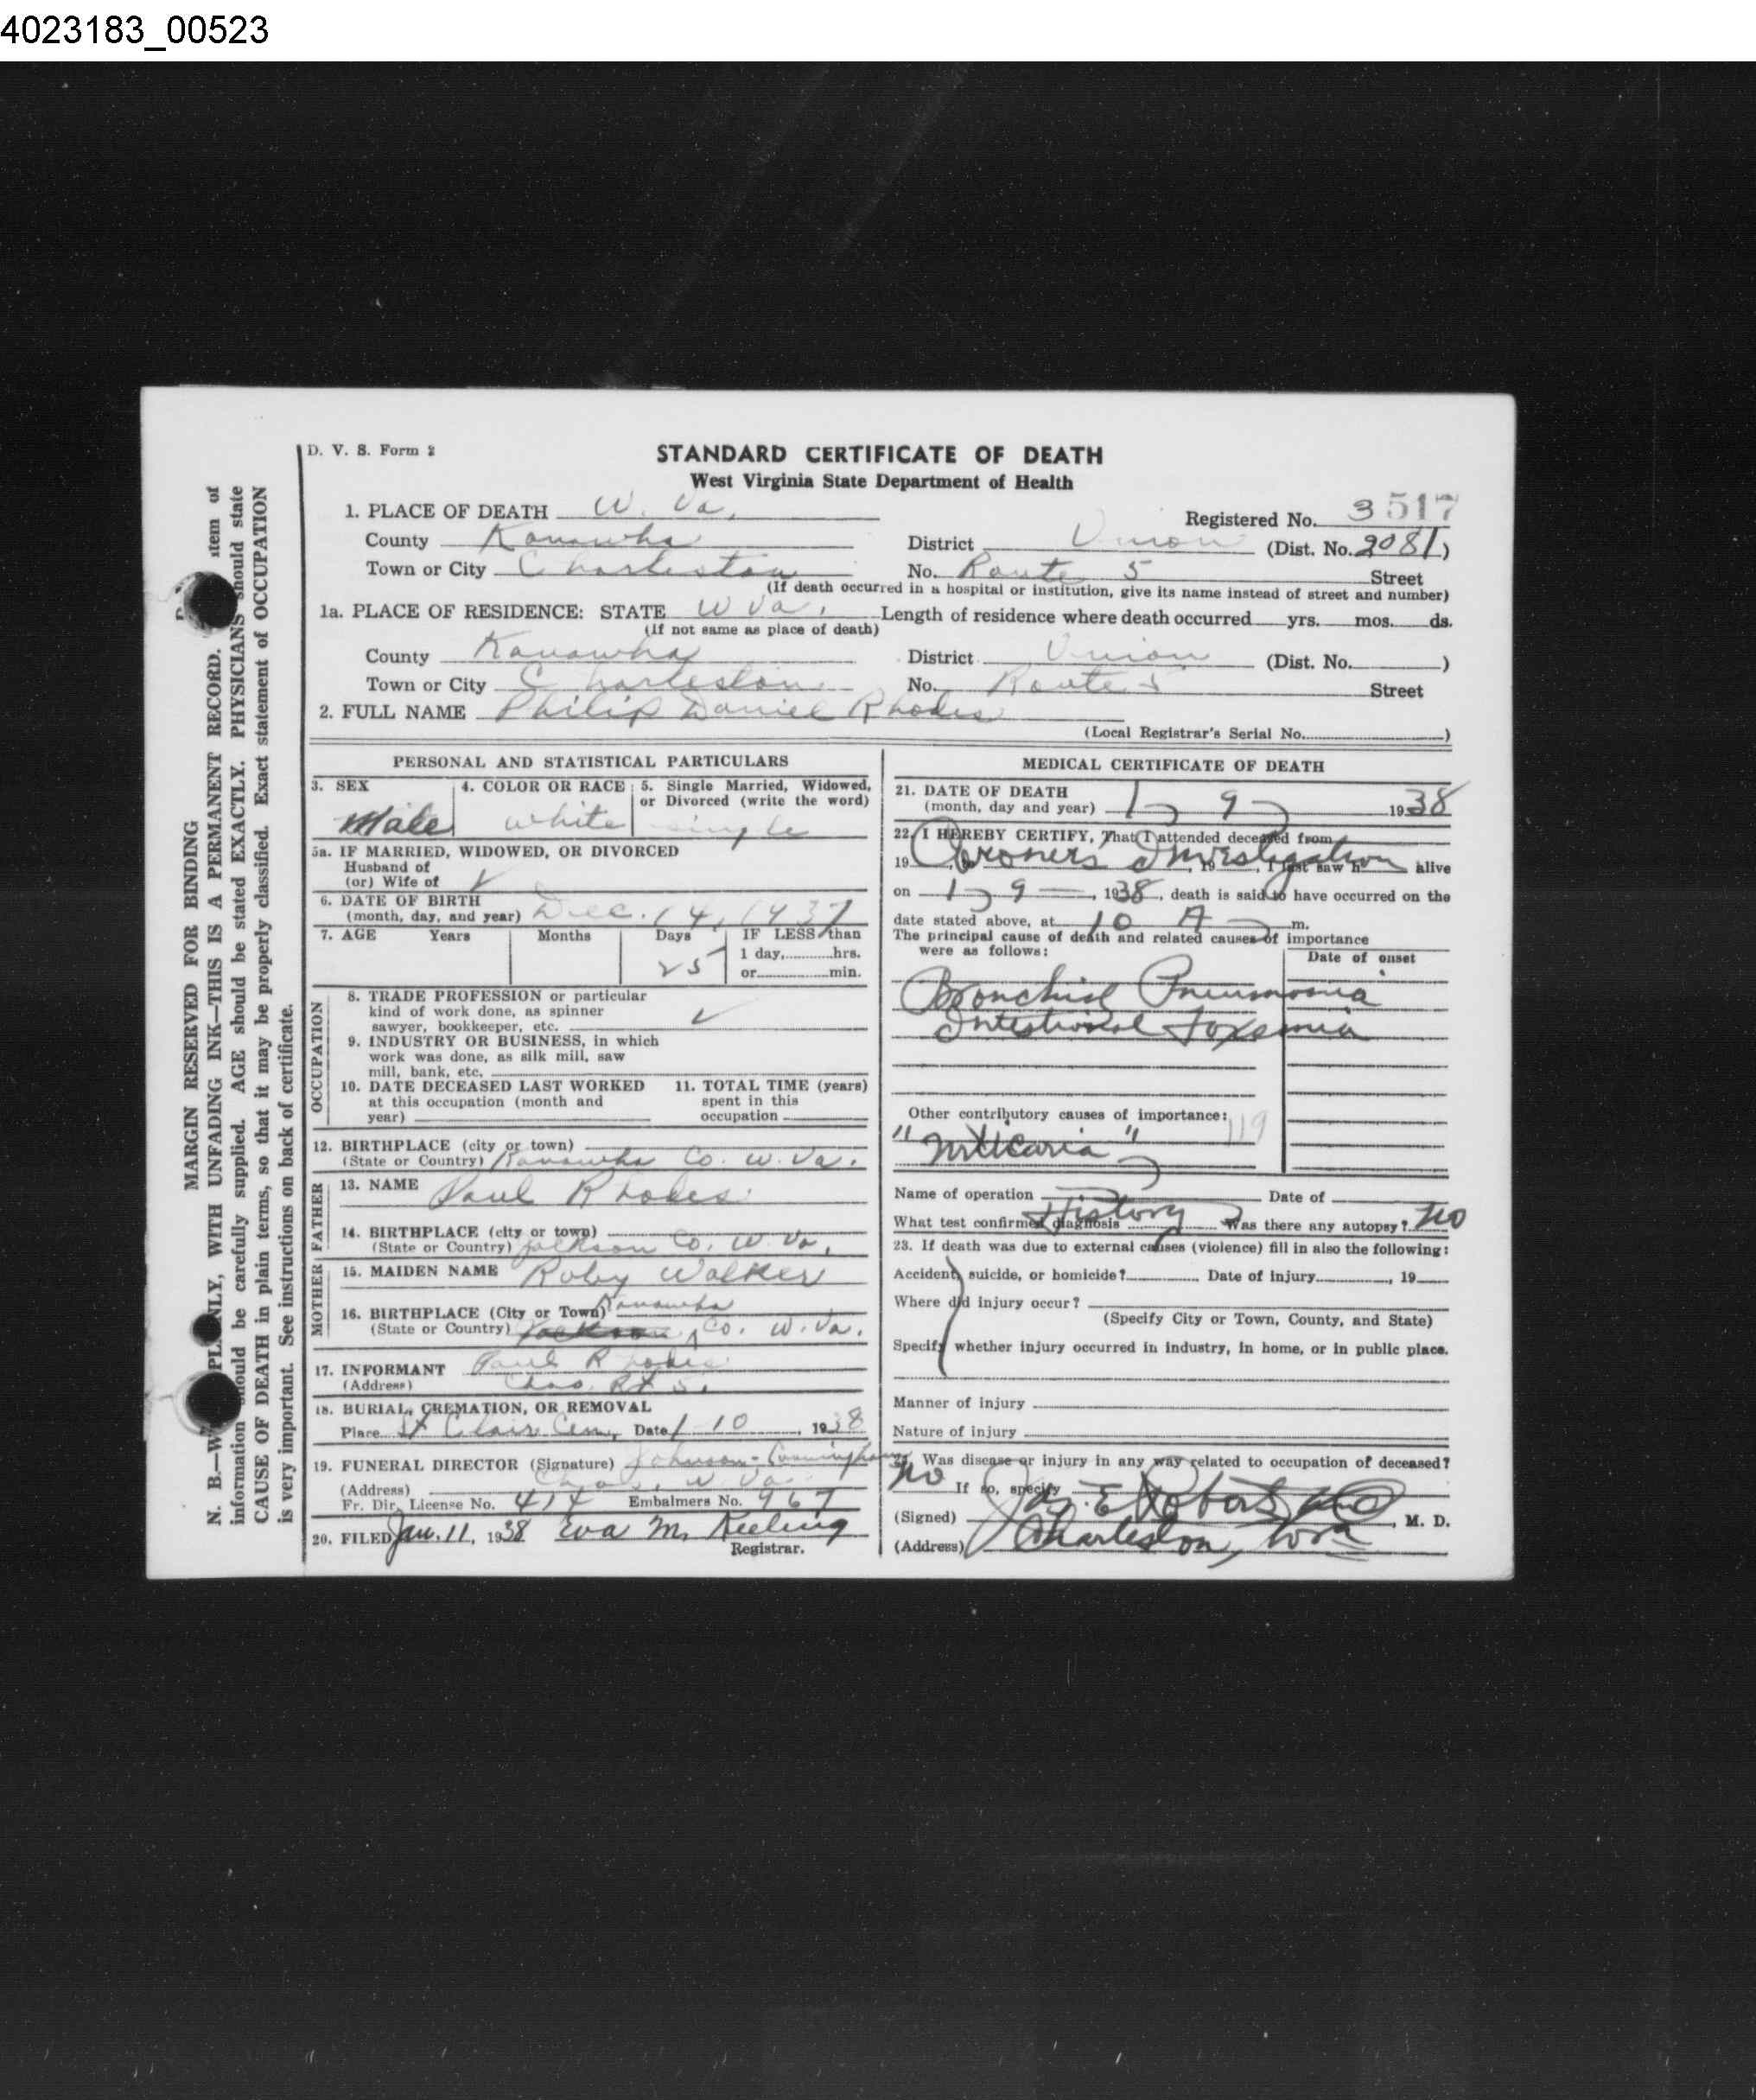 4023183_00523
D. V. S. Form 2
STANDARD CERTIFICATE OF DEATH
West Virginia State Department of Health
1. PLACE OF DEATH W. Va.
Registered No. 3517
County Kanawha District Union (Dist. No. 2081)
Town or City Charleston No. Route 5 Street
(If death occurred in a hospital or institution, give its name instead of street and number)
1a. PLACE OF RESIDENCE: STATE W Va. Length of residence where death occurred yrs. mos. ds.
(If not same as place of death)
County Kanawha District Union (Dist. No. )
Town or City Charleston No. Route 5 Street
2. FULL NAME Philip Daniel Rhodes
(Local Registrar's Serial No. )
MARGIN RESERVED FOR BINDING
N. B.—W PLAINLY, WITH UNFADING INK—THIS IS A PERMANENT RECORD. item of
information should be carefully supplied. AGE should be stated EXACTLY. PHYSICIANS should state
CAUSE OF DEATH in plain terms, so that it may be properly classified. Exact statement of OCCUPATION
is very important. See instructions on back of certificate.
PERSONAL AND STATISTICAL PARTICULARS
3. SEX 4. COLOR OR RACE 5. Single Married, Widowed,
or Divorced (write the word)
Male white single
5a. IF MARRIED, WIDOWED, OR DIVORCED
Husband of
(or) Wife of
6. DATE OF BIRTH
(month, day, and year) Dec. 14, 1937
7. AGE Years Months Days IF LESS than
1 day, hrs.
25 or min.
OCCUPATION
8. TRADE PROFESSION or particular
kind of work done, as spinner
sawyer, bookkeeper, etc.
9. INDUSTRY OR BUSINESS, in which
work was done, as silk mill, saw
mill, bank, etc.
10. DATE DECEASED LAST WORKED 11. TOTAL TIME (years)
at this occupation (month and spent in this
year) occupation
12. BIRTHPLACE (city or town)
(State or Country) Kanawha Co. W. Va.
FATHER
13. NAME Paul Rhodes
14. BIRTHPLACE (city or town)
(State or Country) Jackson Co. W Va.
MOTHER
15. MAIDEN NAME Ruby Walker
16. BIRTHPLACE (City or Town) Kanawha
(State or Country) Jackson Co. W. Va.
17. INFORMANT Paul Rhodes
(Address) Chas. Rt 5.
18. BURIAL, CREMATION, OR REMOVAL
Place St Clair Cem. Date 1-10, 1938
19. FUNERAL DIRECTOR (Signature) Johnson-Cunningham
(Address) Chas. W. Va.
Fr. Dir. License No. 414 Embalmers No. 967
20. FILED Jan. 11, 1938 Eva M. Keeling
Registrar.
MEDICAL CERTIFICATE OF DEATH
21. DATE OF DEATH
(month, day and year) 1 - 9 - 1938
22. I HEREBY CERTIFY, That I attended deceased from
19 , to , 19 , I last saw h alive
Coroners Investigation
on 1 - 9 -, 1938, death is said to have occurred on the
date stated above, at 10 A m.
The principal cause of death and related causes of importance
were as follows: Date of onset
Bronchial Pneumonia
Intestional Toxemia
Other contributory causes of importance: 119
Name of operation Date of
What test confirmed diagnosis History Was there any autopsy? No
23. If death was due to external causes (violence) fill in also the following:
Accident, suicide, or homicide? Date of injury , 19
Where did injury occur?
(Specify City or Town, County, and State)
Specify whether injury occurred in industry, in home, or in public place.
Manner of injury
Nature of injury
24. Was disease or injury in any way related to occupation of deceased?
No If so, specify
(Signed) E. Roberts M. D.
(Address) Charleston, W Va